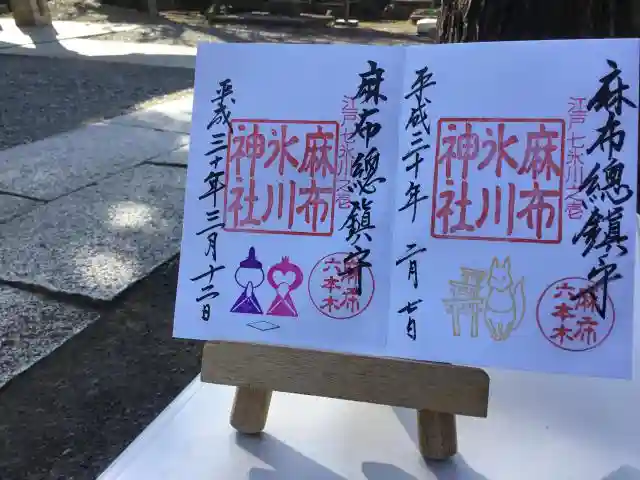 麻布總鎮守
江戸七氷川之壱
麻布
氷川
神社
麻布
六本木
平成三十年二月七日
麻布總鎮守
江戸七氷川之壱
麻布
氷川
神社
麻布
六本木
平成三十年三月十二日